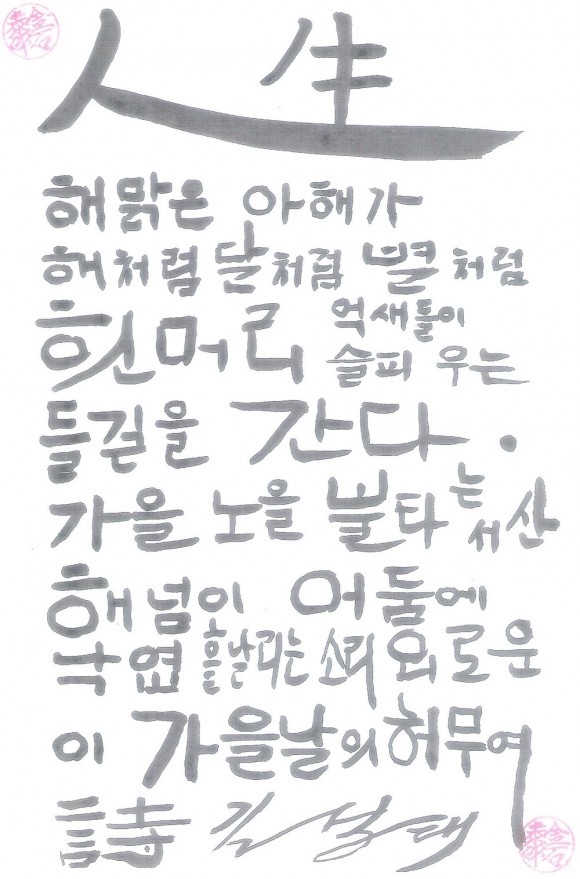 人生
해맑은 아해가
해처럼 달처럼 별처럼
흰머리 억새들이
슬피 우는
들길을 간다.
가을 노을 불타는 서산
해넘이 어둘에
낙엽 흩날리는 소리 외로운
이 가을날의 허무여
詩 김